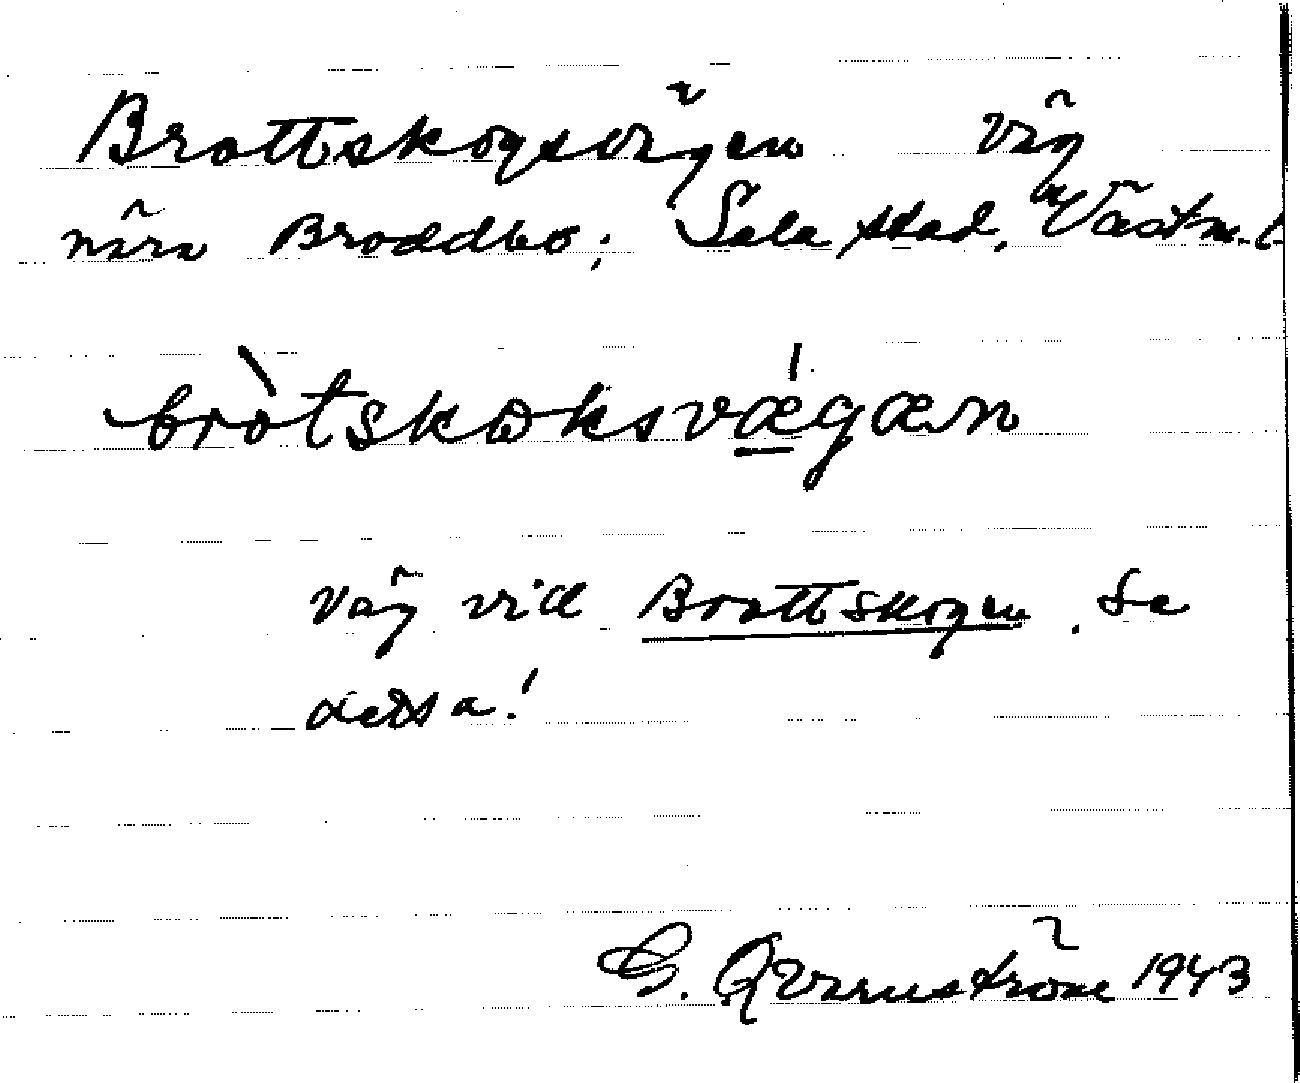 Brottskogsvägen väg
nära Broddbo; Sala stad, Västm.l.
bròtskɷksvǽgæn
väg vid Brottskogen. Se
dessa!
G. Qvarnström 1943